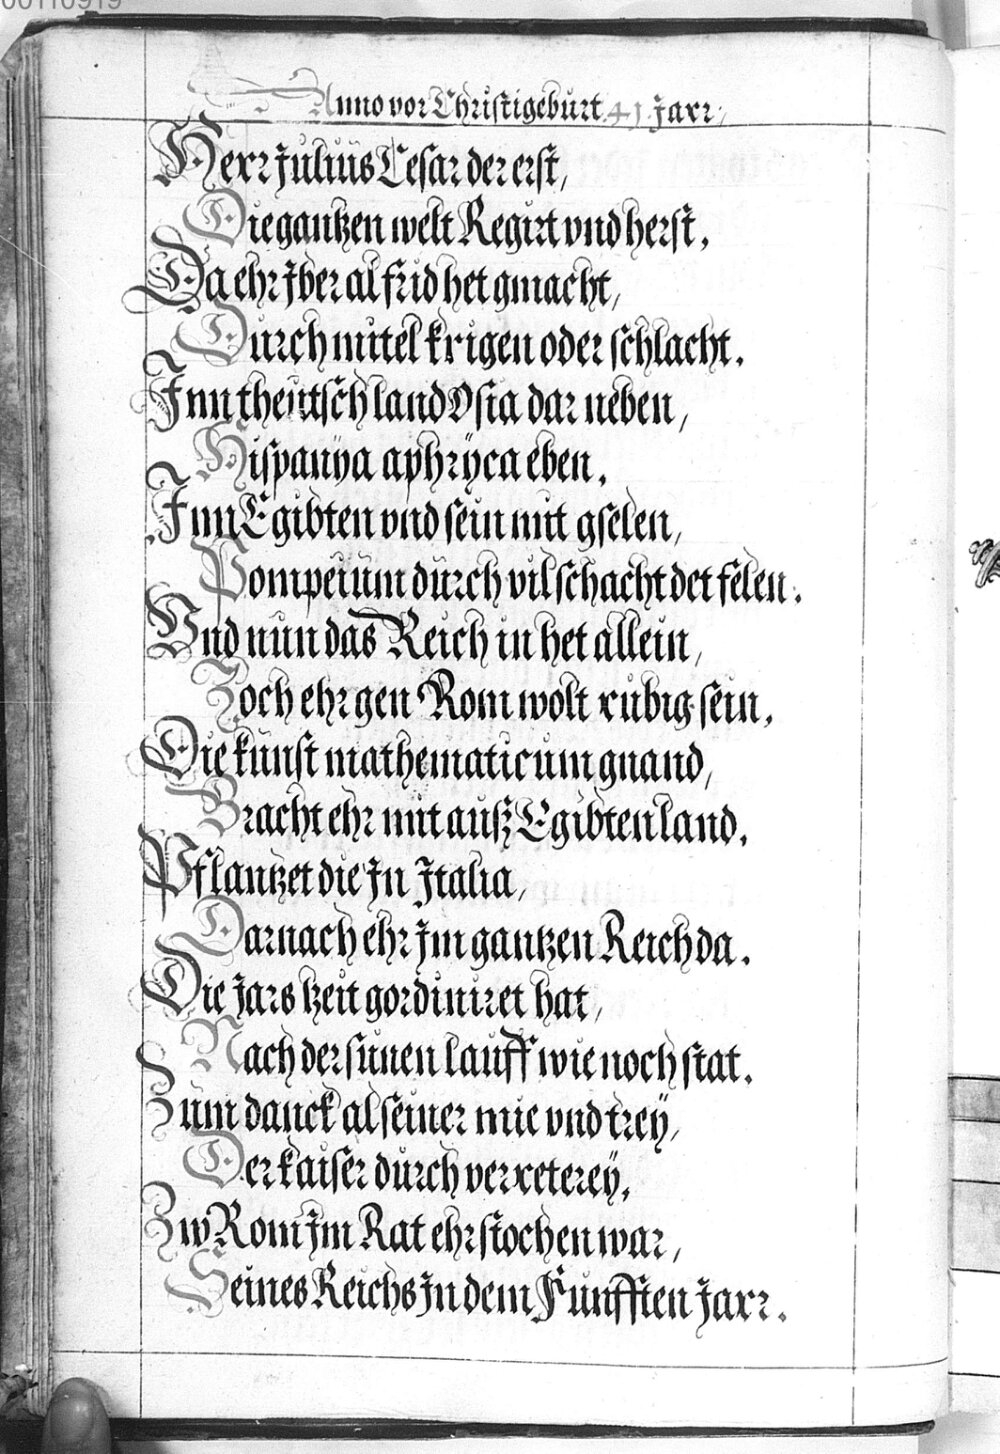 00110919
Anno vor Christi gebürt 41 Jarr,
Herr Julius Cesar der erst,
Die gantzen welt Regirt vnd herst.
Da ehr Jber al frid het gmacht,
Durch mitel krigen oder schlacht.
Inn theutschland Osia dar neben,
Hispanÿa aphrÿca eben.
Inn Egibten vnd sein mit gselen,
Pompeiüm dürch vil schacht det felen.
Vnd nün das Reich in het allein,
Zoch ehr gen Rom wolt rübig sein,
Die künst mathematicum gnand,
Bracht ehr mit außz Egibtenland.
Pflantzet die Jn Italia,
Darnach ehr Jm gantzen Reich da.
Die Jars tzeit gordiniret hat,
Nach der sünen lauff wie noch stat.
Züm danck al seiner mie vnd trey,
Der kaiser dürch verreterey,
Zw Rom Jm Rat ehrstochen war,
Seines Reichs Jn dem Fünfften Jarr.